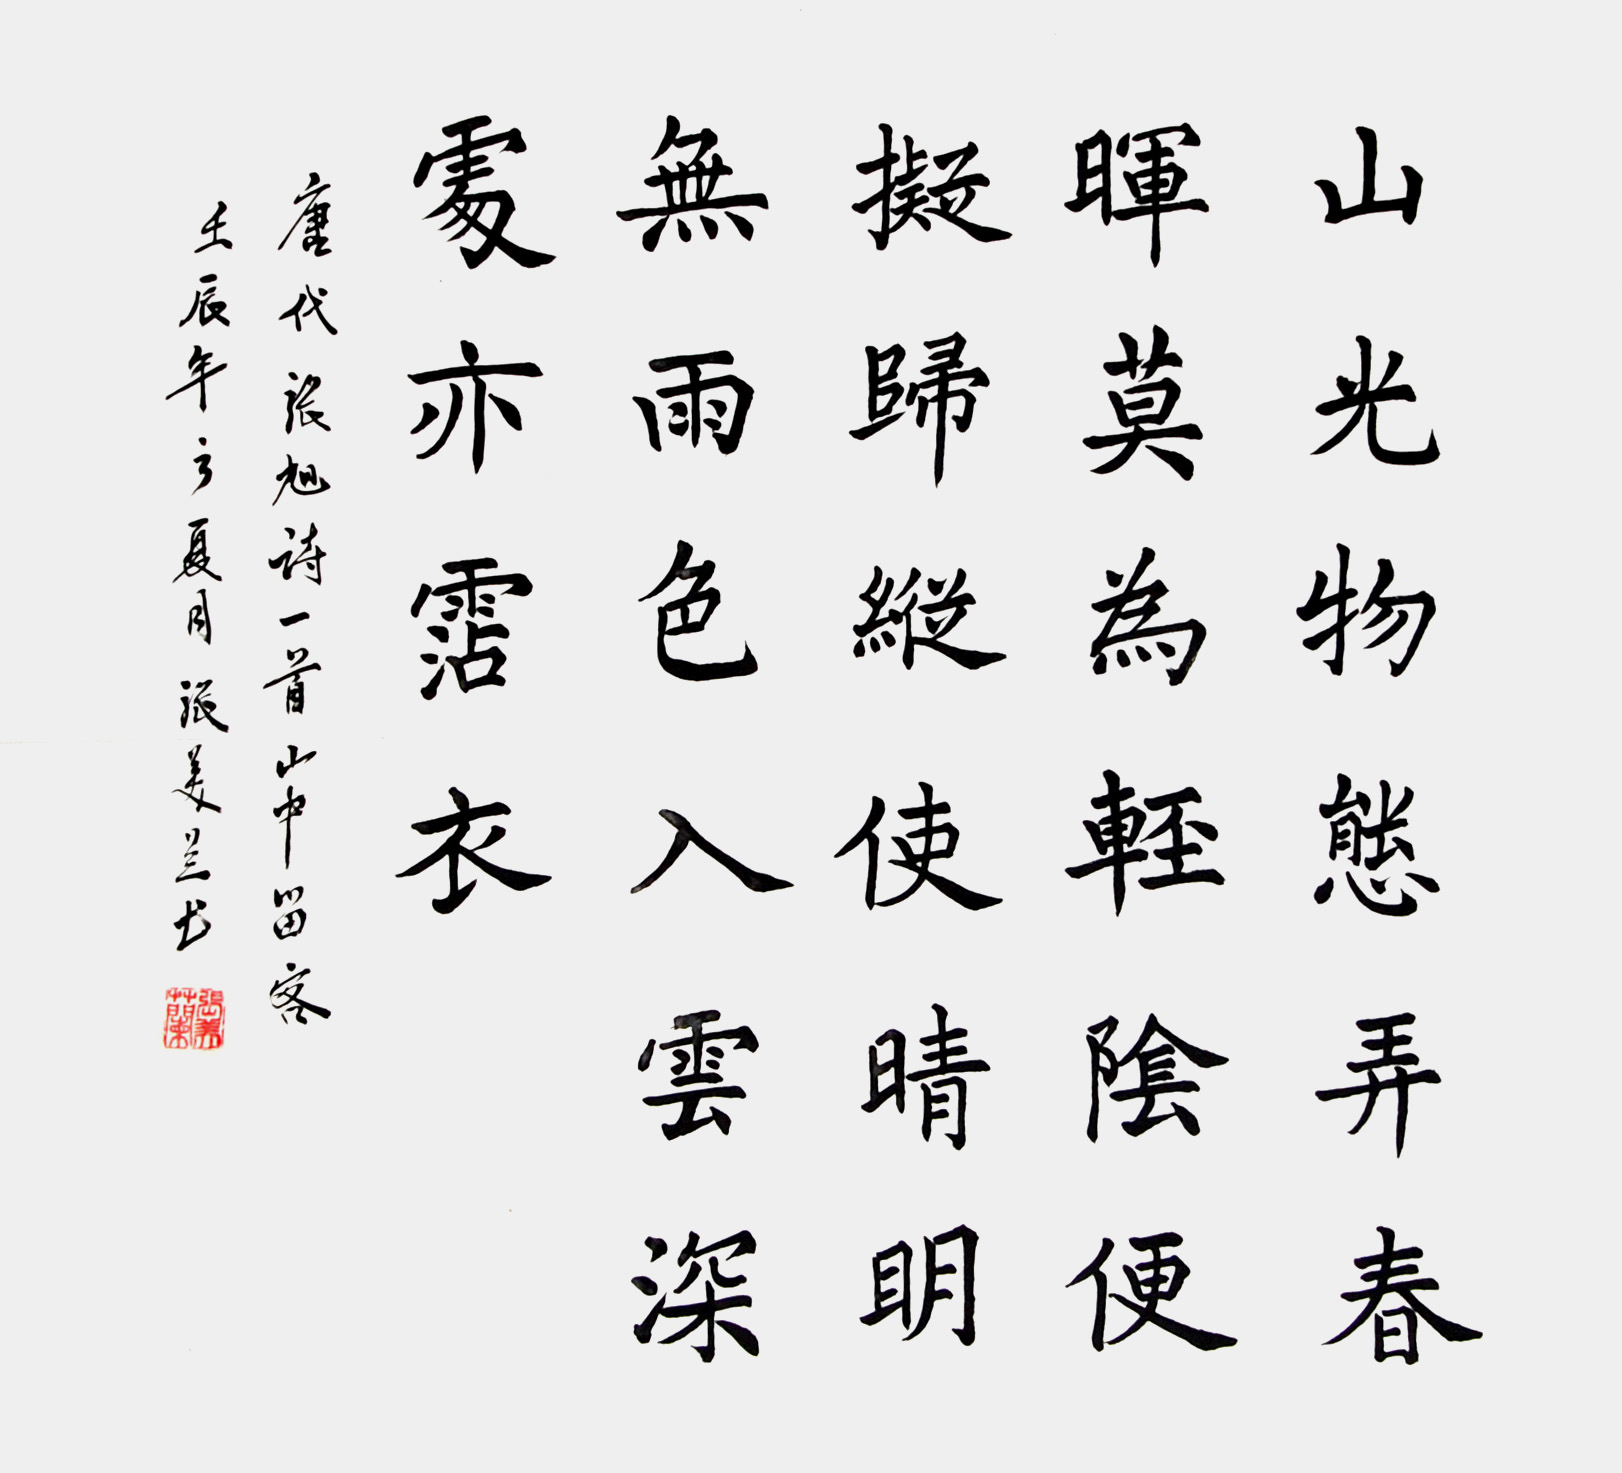 山光物態弄春
暉莫為輕陰便
擬歸縱使晴明
無雨色入雲深
處亦霑衣
唐代張旭詩一首山中留客
壬辰年之夏月張美兰书
張美蘭